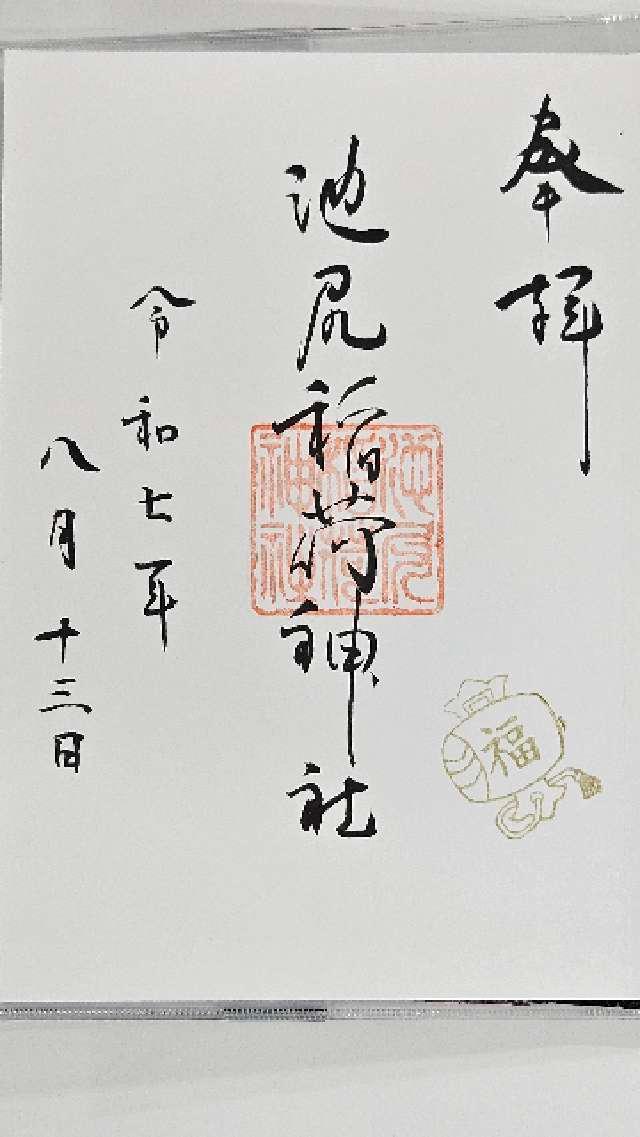 奉拝
池尻稲荷神社
池尻稲荷神社
福
令和七年
八月十三日